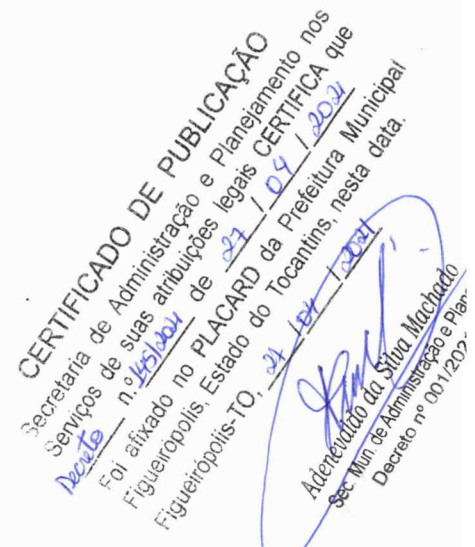 CERTIFICADO DE PUBLICAÇÃO
Secretaria de Administração e Planejamento nos
Serviços de suas atribuições legais CERTIFICA que
Decreto n.º 145/2021 de 27 / 04 / 2021
Foi afixado no PLACARD da Prefeitura Municipal
Figueirópolis, Estado do Tocantins, nesta data.
Figueirópolis-TO, 27 / 04 / 2021
Adenevaldo da Silva Machado
Sec. Mun. de Administração e Plane
Decreto nº 001/202